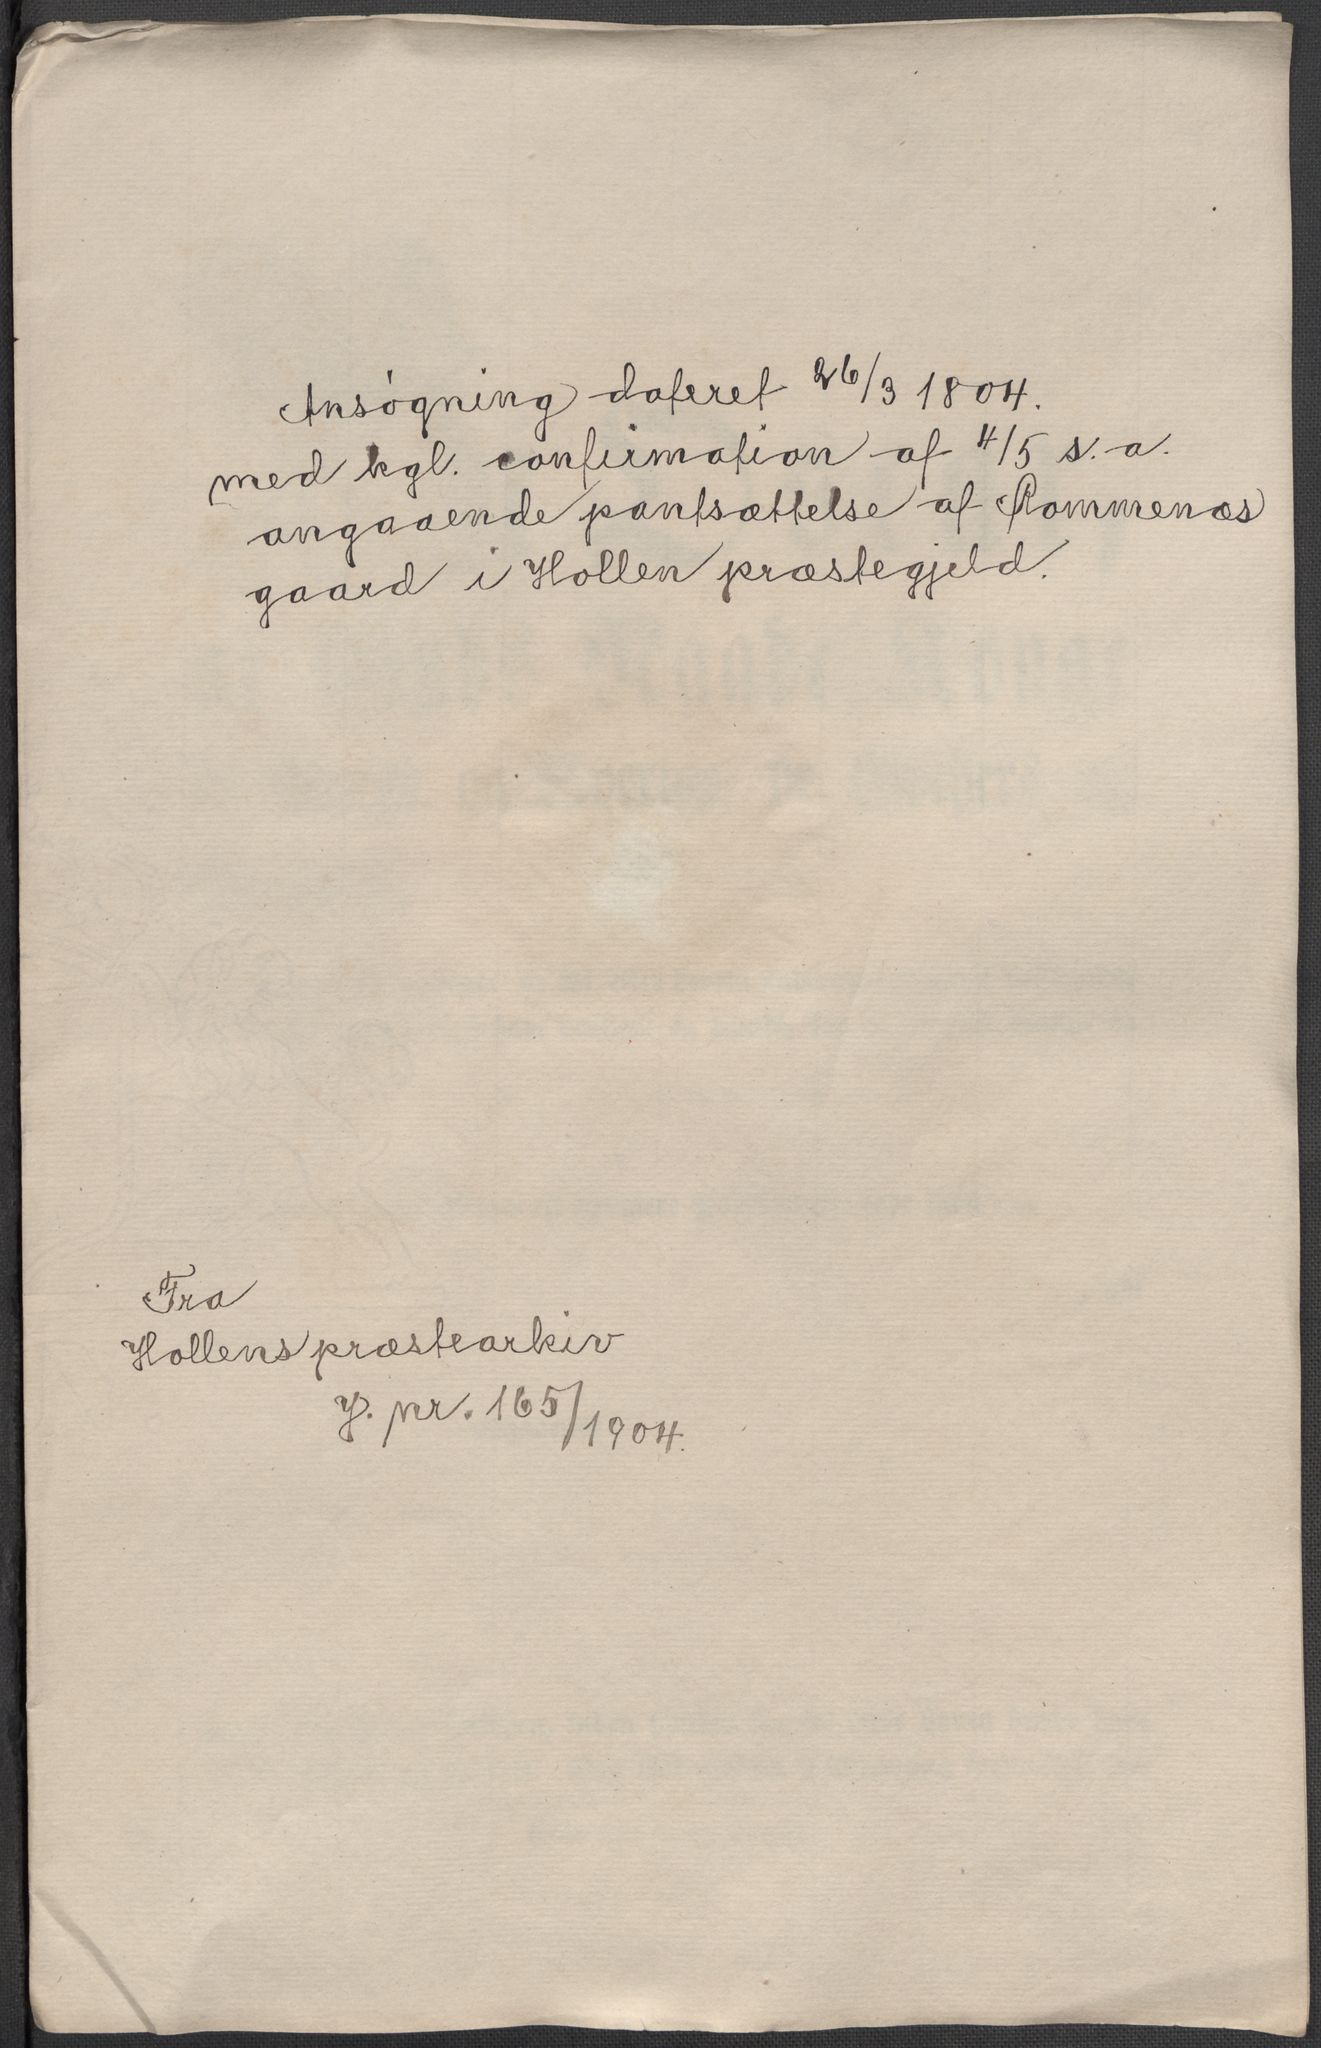 Ansøgning dateret 26/3 1804.
med kgl. confirmation af 4/5 s. a.
angaaende pantsættelse af Rommenæs
gaard i Hollen præstegjeld.
Fra
Hollens præstearkiv
J. nr. 165/1904.